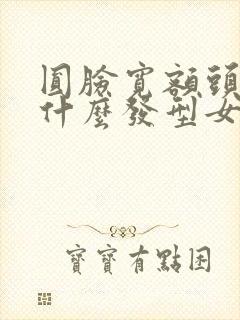 圓臉寬額頭
什麼發型女
寶寶有點困